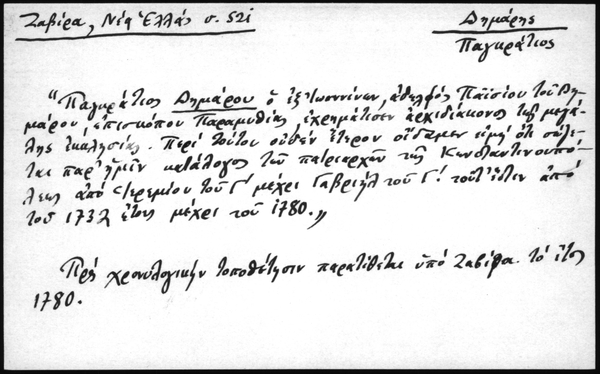 Ζαβίρα, Νέα Ἑλλάς σ. 521
Δημάρης
Παγκράτιος
"Παγκράτιος Δημάρου ὁ ἐξ Ἰωαννίνων, ἀδελφός Παϊσίου τοῦ Δη-
μάρου, ἐπισκόπου Παραμυθίας, ἐχρημάτισεν ἀρχιδιάκονος τῆς μεγά-
λης ἐκκλησίας. Περί τούτου οὐδέν ἕτερον οἴδαμεν εἰμή ὅτι σώζε-
ται παρ' ἡμῖν κατάλογος τῶν πατριαρχῶν τῆς Κωνσταντινουπό-
λεως ἀπό Ἱερεμίου τοῦ Γ' μέχρι Γαβριήλ τοῦ Γ'. τοῦτ' ἔστιν ἀπό
τοῦ 1732 ἔτους μέχρι τοῦ 1780.„
Πρός χρονολογικήν τοποθέτησιν παρατίθεται ὑπό Ζαβίρα τό ἔτος
1780.